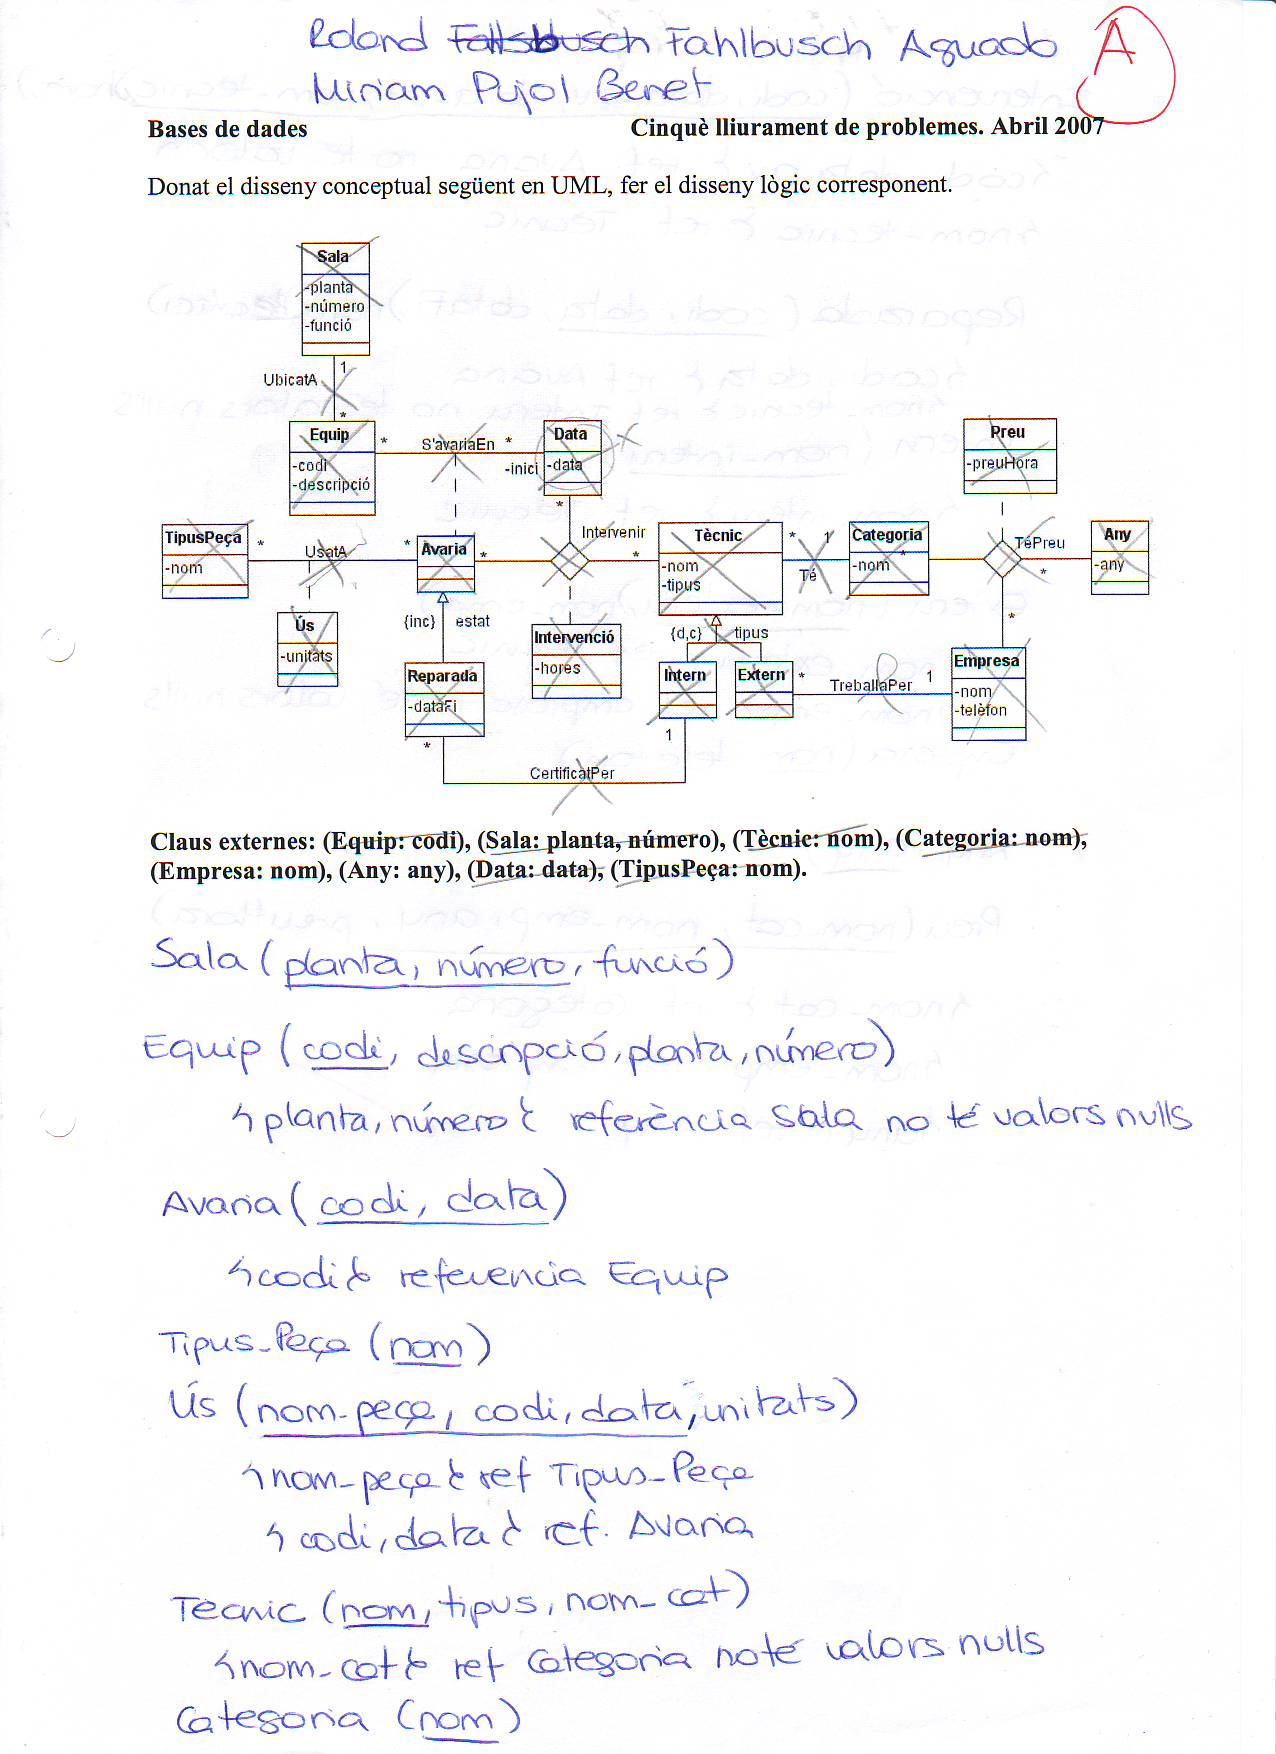 Roland Fahlbusch Aguado A
Miriam Pujol Benet
Bases de dades Cinquè lliurament de problemes. Abril 2007
Donat el disseny conceptual següent en UML, fer el disseny lògic corresponent.
Sala
-planta
-número
-funció
1
UbicatA
*
Equip
-codi
-descripció
* S'avariaEn *
-inici
Data
-data
Preu
-preuHora
TipusPeça
-nom
* UsatA *
Avaria
*
*
Intervenir
*
Tècnic
-nom
-tipus
* 1
Té
Categoria
-nom
*
TéPreu
*
Any
-any
*
Ús
-unitats
{inc} estat
Intervenció
-hores
{d,c} tipus
Reparada
-dataFi
*
Intern
1
Extern
* TreballaPer 1
Empresa
-nom
-telèfon
CertificatPer
Claus externes: (Equip: codi), (Sala: planta, número), (Tècnic: nom), (Categoria: nom),
(Empresa: nom), (Any: any), (Data: data), (TipusPeça: nom).
Sala (planta, número, funció)
Equip (codi, descripció, planta, número)
{planta, número} referència Sala no té valors nulls
Avaria (codi, data)
{codi} referencia Equip
Tipus-Peça (nom)
Ús (nom-peça, codi, data, unitats)
{nom-peça} ref Tipus-Peça
{codi, data} ref. Avaria
Tècnic (nom, tipus, nom-cat)
{nom-cat} ref Categoria no té valors nulls
Categoria (nom)